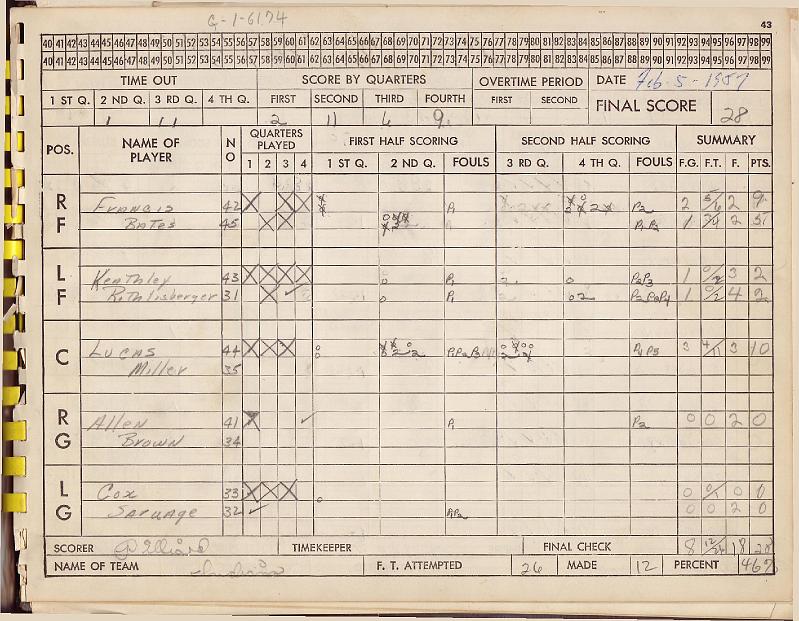 G-1-6174
43
40 41 42 43 44 45 46 47 48 49 50 51 52 53 54 55 56 57 58 59 60 61 62 63 64 65 66 67 68 69 70 71 72 73 74 75 76 77 78 79 80 81 82 83 84 85 86 87 88 89 90 91 92 93 94 95 96 97 98 99
40 41 42 43 44 45 46 47 48 49 50 51 52 53 54 55 56 57 58 59 60 61 62 63 64 65 66 67 68 69 70 71 72 73 74 75 76 77 78 79 80 81 82 83 84 85 86 87 88 89 90 91 92 93 94 95 96 97 98 99
TIME OUT SCORE BY QUARTERS OVERTIME PERIOD DATE Feb-5-1957
1 ST Q. 2 ND Q. 3 RD Q. 4 TH Q. FIRST SECOND THIRD FOURTH FIRST SECOND FINAL SCORE
1 11 2 11 6 9 28
POS. NAME OF PLAYER NO QUARTERS PLAYED FIRST HALF SCORING SECOND HALF SCORING SUMMARY
1 2 3 4 1 ST Q. 2 ND Q. FOULS 3 RD Q. 4 TH Q. FOULS F.G. F.T. F. PTS.
RF Francis 42 X X X P1 P2 2 5/6 2 9
Bates 45 X X 1 3/4 2 5
LF Keathley 43 X X X X 0 P1 2 0 P2P3 1 0/2 3 2
Rothlisberger 31 X ✓ 0 P1 02 P2P3P4 1 0/2 4 2
C Lucas 44 X X X P1P2P3 3 4/11 3 10
Miller 35
RG Allen 41 X ✓ P1 P2 0 0 2 0
Brown 34
LG Cox 33 X X X 0 0 0/1 0 0
Sarvage 32 ✓ P1P2 0 0 2 0
SCORER TIMEKEEPER FINAL CHECK 8 18 28
NAME OF TEAM Indians F. T. ATTEMPTED 26 MADE 12 PERCENT 467